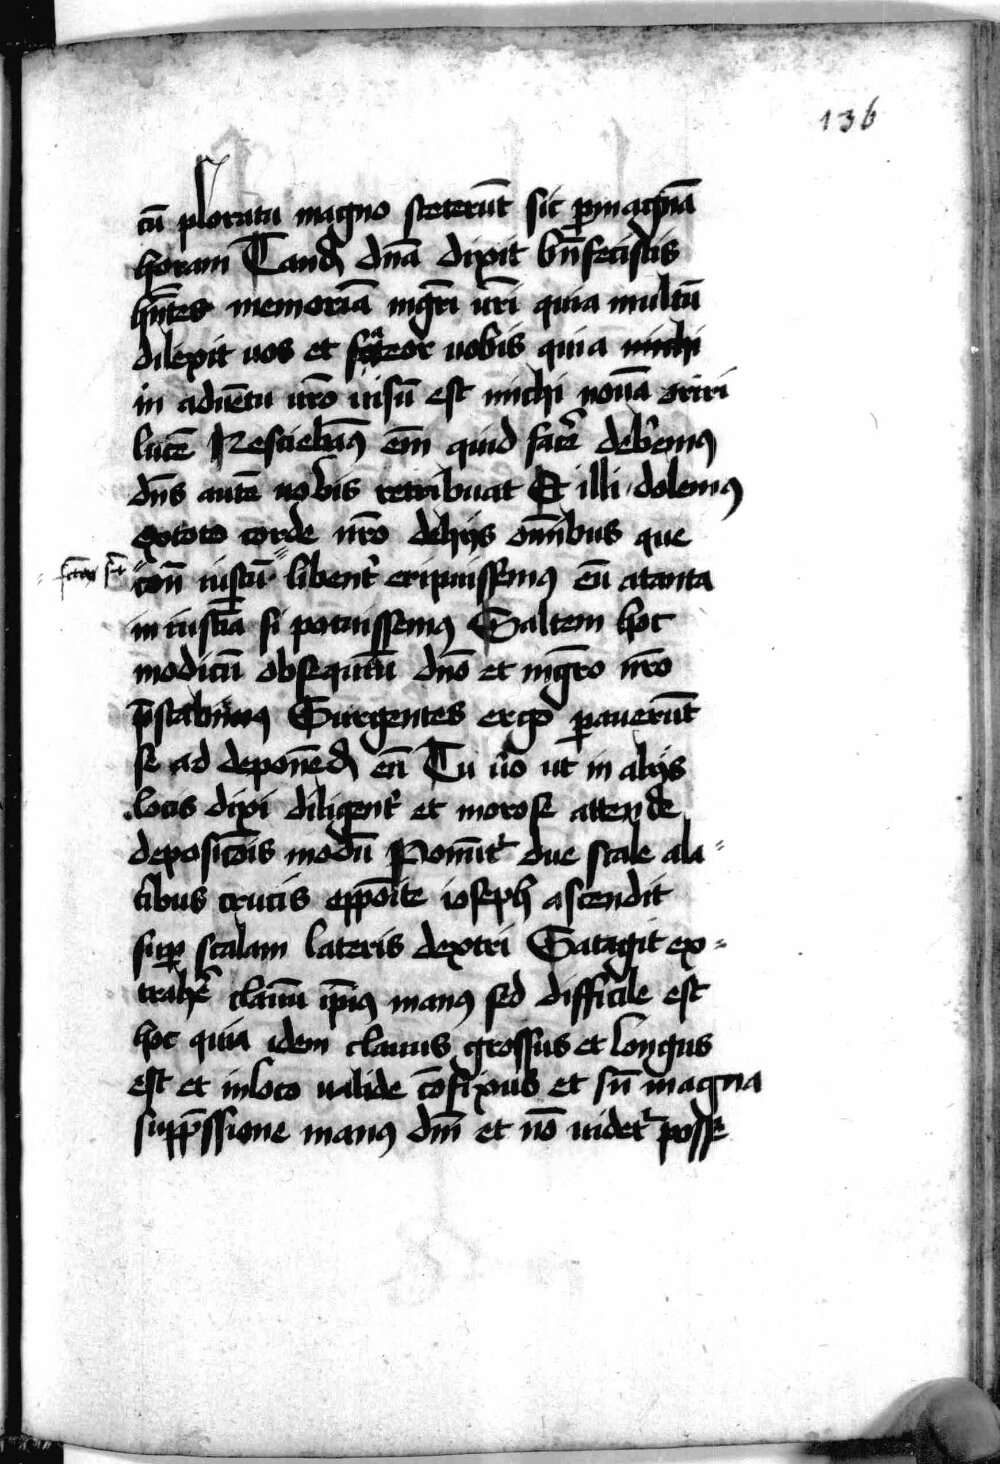 136
cū ploratu magno steterūt sic ꝑmagnā
horam Tandē dn̄a dixit bn̄fecistis
hn̄tes memoriā mgr̄i vr̄i quia multū
dilexit uos et fateor uobis quia michi
in aduētu vr̄o uisū est michi nouā oriri
lucē Nesciebam9 em̄ quid facē deb'em9
dn̄s autē uobis retribuat Et illi dolem9
extoto corde nr̄o dehijs om̄ibus que
con̄ iustū libent' eripuissem9 eū atanta
iniusticīa si potuissem9 Saltem hoc
modicū obsequiū dn̄o et mgr̄o nr̄o
p̄stabim9 Surgentes ergo ꝑauerūt
se ad deponēdū eū Tu ūo ut in alijs
locis dixi diligent' et morose attende
deposicōis modū Ponūt' due scale ala-
t'ibus crucis exp̄oīte ioseph ascendit
suꝑ scalam lateris dextri Satagit ex-
trahē clauū ip̄i9 man9 sed difficile est
hoc quia idem clauus grossus et longus
est et inloco ualide cōfixus et sn̄ magna
supp̄ssione man9 dn̄i et nō uidet' posse